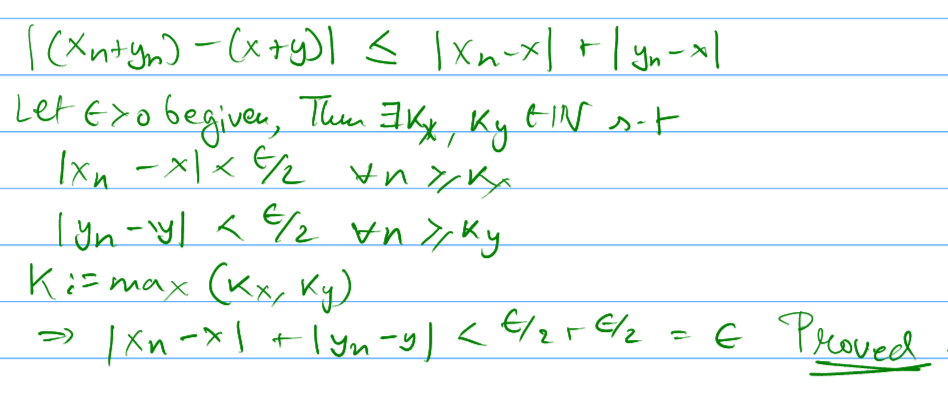 |(xn+yn) - (x+y)| ≤ |xn-x| + |yn-x|
Let ϵ>0 be given, Then ∃Kx, Ky ∈ IN s.t
|xn - x| < ϵ/2 ∀n ≥ Kx
|yn - y| < ϵ/2 ∀n ≥ Ky
K := max (Kx, Ky)
⇒ |xn-x| + |yn-y| < ϵ/2 + ϵ/2 = ϵ Proved